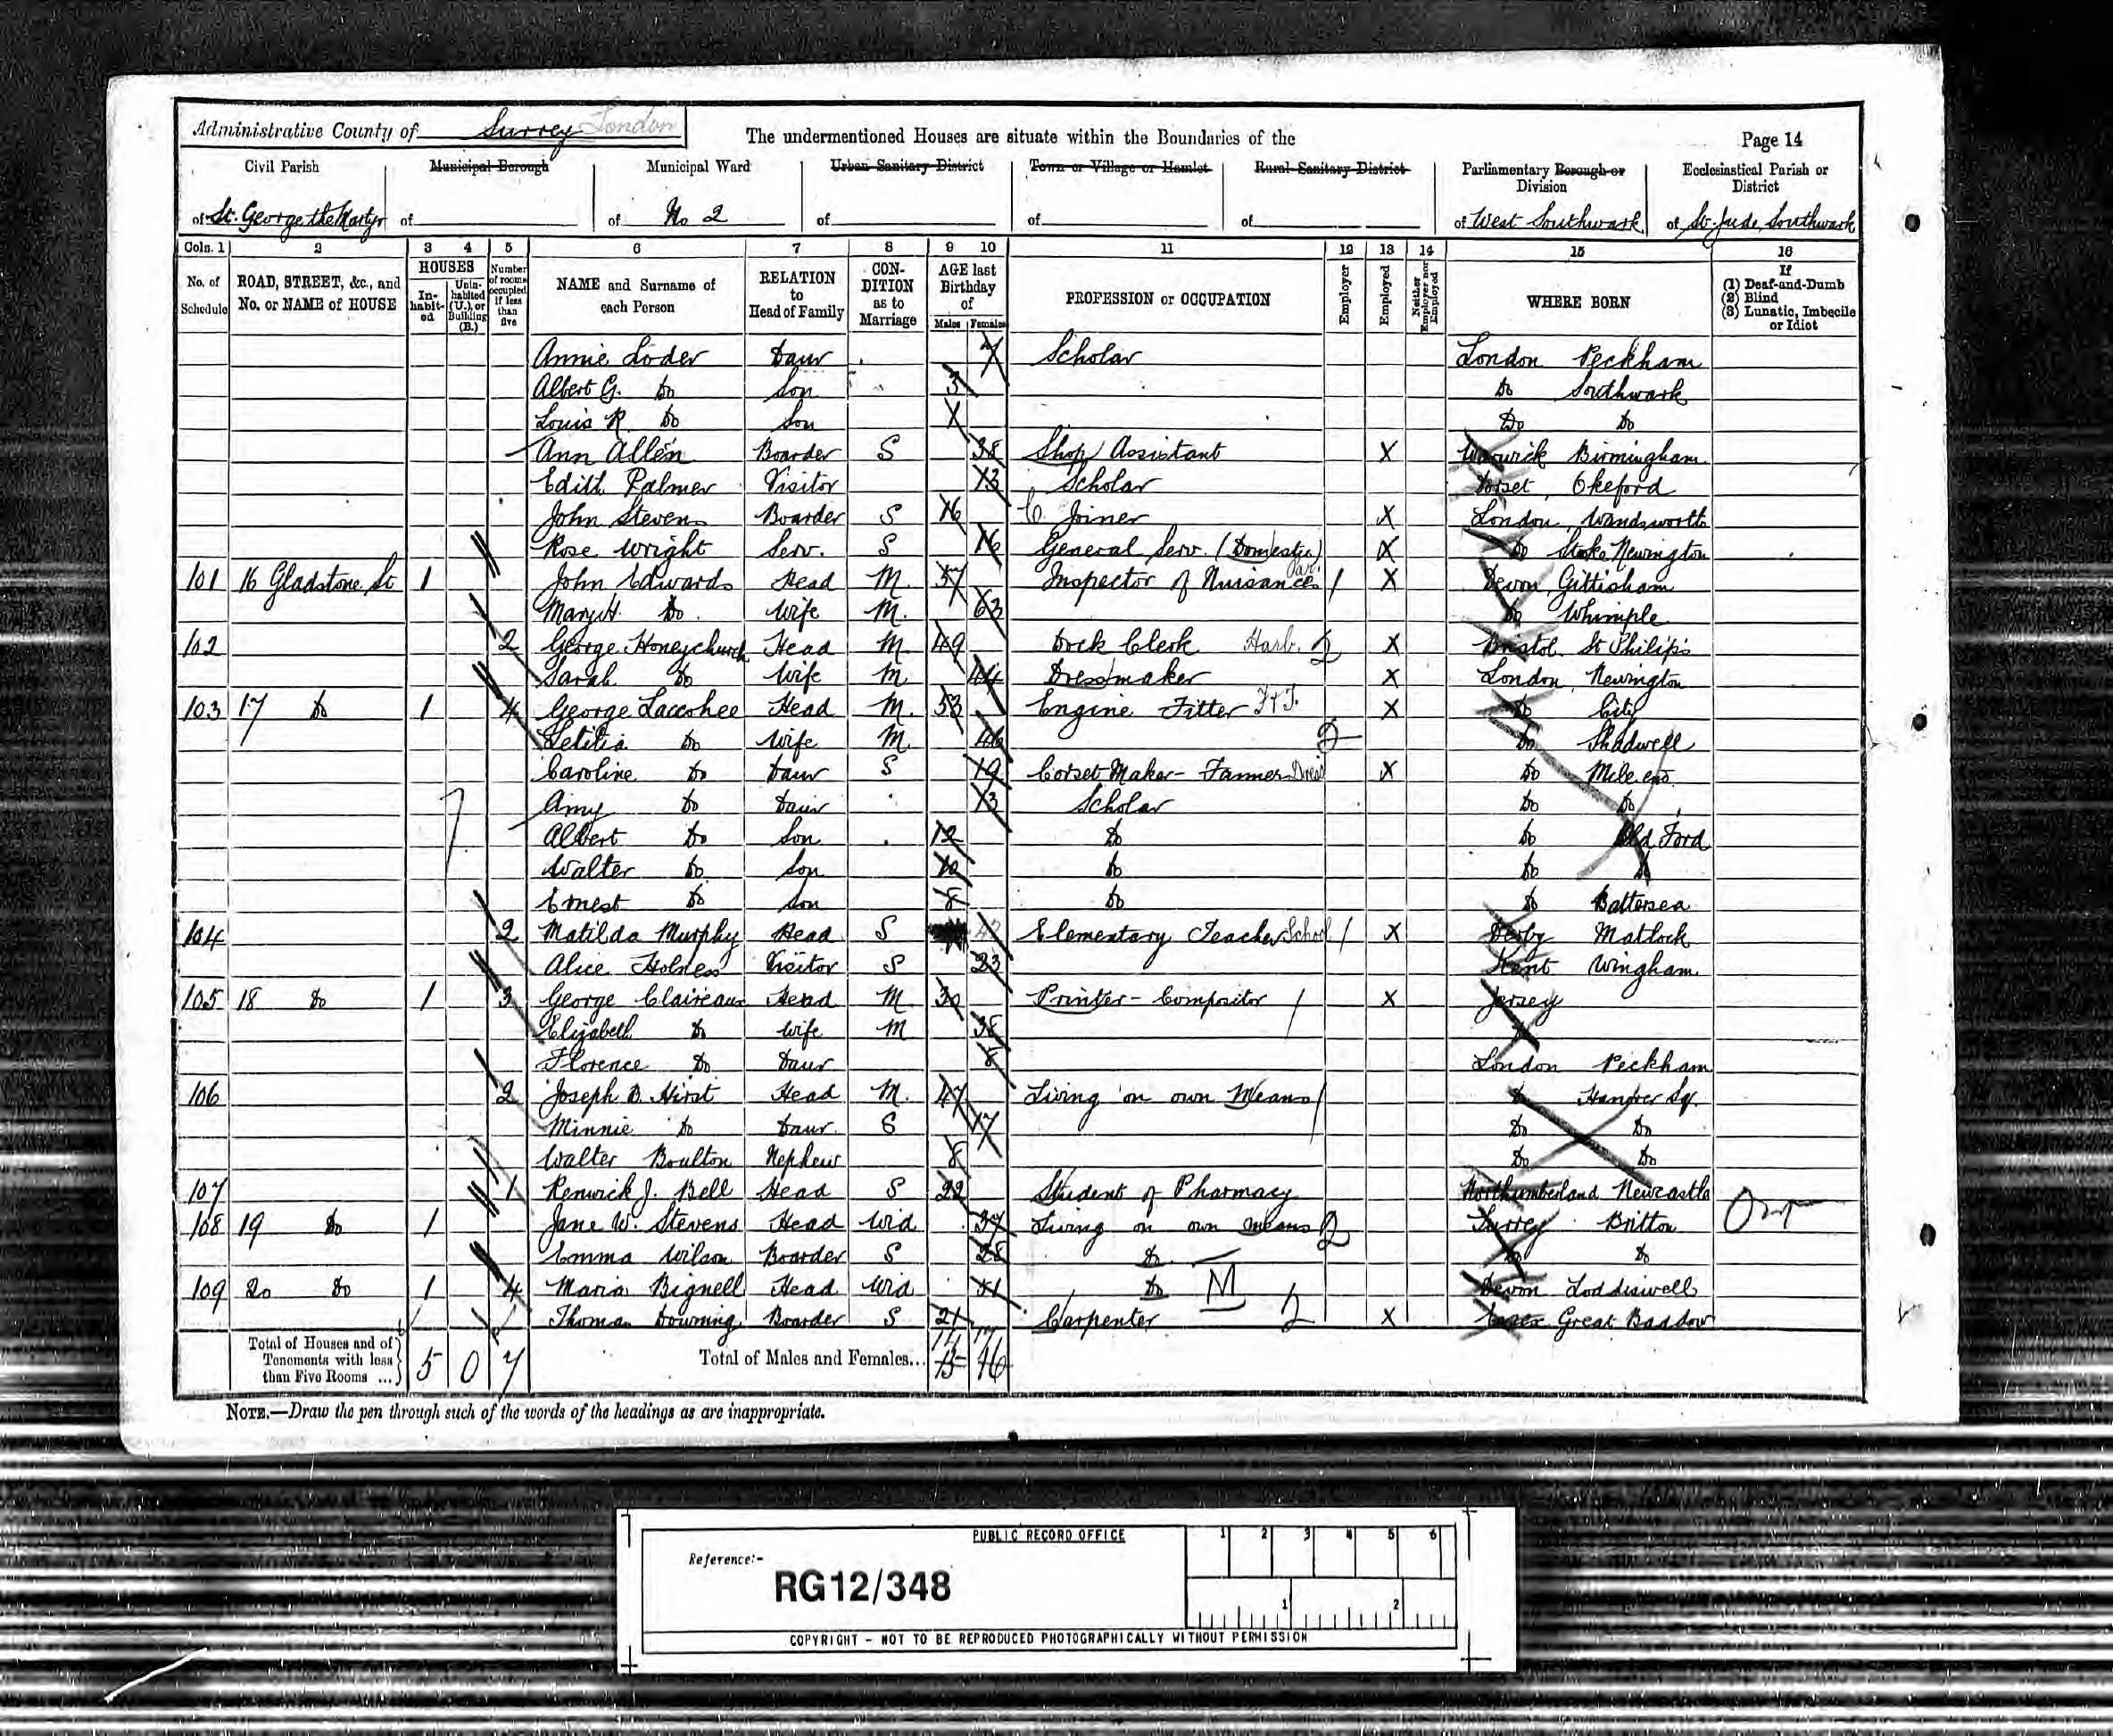 Administrative County of Surrey London
The undermentioned Houses are situate within the Boundaries of the
Page 14
Civil Parish of St. George the Martyr
Municipal Borough of
Municipal Ward of No 2
Urban Sanitary District of
Town or Village or Hamlet of
Rural Sanitary District of
Parliamentary Borough or Division of West Southwark
Ecclesiastical Parish or District of St. Jude, Southwark
Coln. 1 2 3 4 5 6 7 8 9 10 11 12 13 14 15 16
No. of Schedule
ROAD, STREET, &c., and No. or NAME of HOUSE
HOUSES
Inhabited
Uninhabited (U.), or Building (B.)
Number of rooms occupied if less than five
NAME and Surname of each Person
RELATION to Head of Family
CONDITION as to Marriage
AGE last Birthday of
Males Females
PROFESSION or OCCUPATION
Employer
Employed
Neither Employer nor Employed
WHERE BORN
If
(1) Deaf-and-Dumb
(2) Blind
(3) Lunatic, Imbecile or Idiot
Annie Loder Daur 7 Scholar London Peckham
Albert G. Do Son 3 Do Southwark
Louis R. Do Son Do Do
Ann Allen Boarder S 38 Shop Assistant X Warwick Birmingham
Edith Palmer Visitor 13 Scholar Dorset, Okeford
John Stevens Boarder S 16 C. Joiner X London, Wandsworth
Rose Wright Serv. S 16 General Serv. (Domestic) X Do Stoke Newington
101 16 Gladstone St 1 John Edwards Head M. 57 Inspector of Nuisances X Devon, Gittisham
Mary H. Do. Wife M. 63 Do Whimple
102 2 George Honeychurch Head M 49 Dock Clerk Harb. 2 X Bristol St Philip's
Sarah Do Wife M 44 Dressmaker X London, Newington
103 17 Do 1 4 George Laccohee Head M. 53 Engine Fitter F & T. X Do City
Letitia Do Wife M. 46 2 Do Shadwell
Caroline Do Daur S 19 Corset Maker - Fanner Dress X Do Mile end
Amy Do Daur 13 Scholar Do Do
Albert Do Son 12 Do Do Old Ford
Walter Do Son 10 Do Do Do
Ernest Do Son 8 Do Do Battersea
104 2 Matilda Murphy Head S Elementary Teacher School X Derby Matlock
Alice Holness Visitor S 23 Kent Wingham
105 18 Do 1 3 George Claireaux Head M. 30 Printer - Compositor X Jersey
Elizabeth Do Wife M 38 Do
Florence Do Daur 8 London Peckham
106 2 Joseph B. Hirst Head M. 47 Living on own Means Do Hanover Sq.
Minnie Do Daur. S 17 Do Do
Walter Boulton Nephew 8 Do Do
107 1 Renwick J. Bell Head S 22 Student of Pharmacy Northumberland Newcastle
108 19 Do 1 Jane W. Stevens Head Wid 37 Living on own Means 2 Surrey Britton
Emma Wilson Boarder S 28 Do Do Do
109 20 Do 1 4 Maria Bignell Head Wid 51 Do M Devon Loddiswell
Thomas Downing Boarder S 21 Carpenter 2 X Essex Great Baddow
Total of Houses and of Tenements with less than Five Rooms ... 5 0 7
Total of Males and Females... 14 17
15 16
NOTE.—Draw the pen through such of the words of the headings as are inappropriate.
PUBLIC RECORD OFFICE
1 2 3 4 5 6
Reference:-
RG12/348
1 2
COPYRIGHT - NOT TO BE REPRODUCED PHOTOGRAPHICALLY WITHOUT PERMISSION